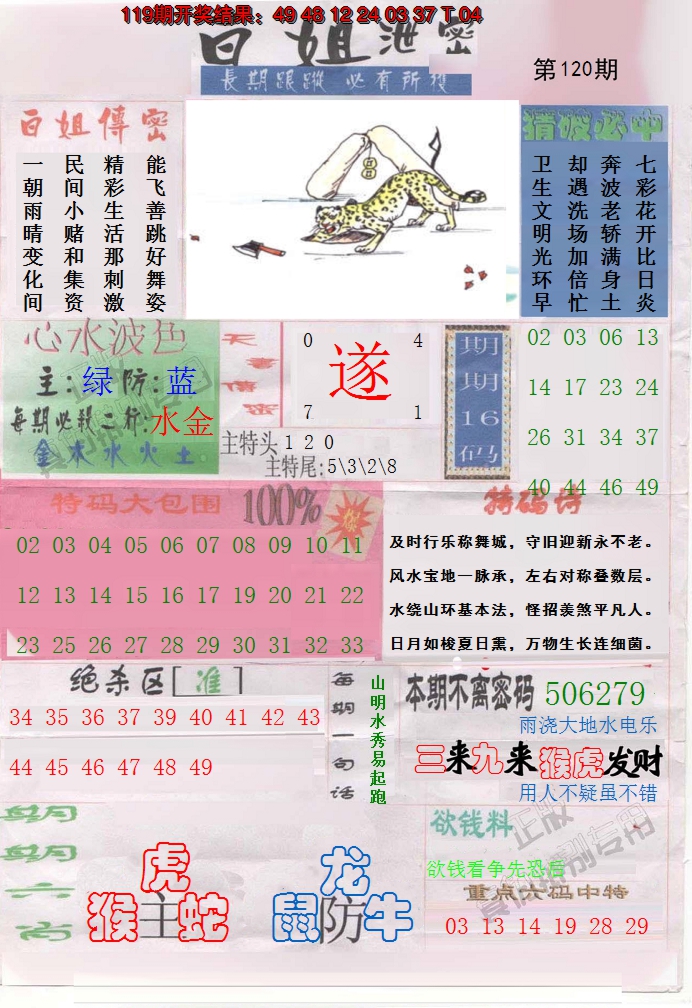 119期开奖结果：49 48 12 24 03 37 T 04
白姐泄密
第120期
長期跟蹤 必有所獲
白姐傳密
能飞善跳好舞姿
精彩生活那刺激
民间小赌和集资
一朝雨晴变化间
猜波必中
七彩花开比日炎
奔波老轿满身土
却遇洗场加倍忙
卫生文明光环早
心水波色
主:绿防:蓝
每期必殺二行:水金
金木水火土
0 4
遂
7 1
主特头120
主特尾:5\3\2\8
期期16码
02 03 06 13
14 17 23 24
26 31 34 37
40 44 46 49
特码大包围 100%
02 03 04 05 06 07 08 09 10 11
12 13 14 15 16 17 19 20 21 22
23 25 26 27 28 29 30 31 32 33
特码诗
及时行乐称舞城，守旧迎新永不老。
风水宝地一脉承，左右对称叠数层。
水绕山环基本法，怪招羡煞平凡人。
日月如梭夏日熏，万物生长连细菌。
绝杀区[准]
34 35 36 37 39 40 41 42 43
44 45 46 47 48 49
每期一句话
山明水秀易起跑
本期不离密码 506279
雨浇大地水电乐
三来九来猴虎发财
用人不疑虽不错
每期六肖
虎
猴主蛇
龙
鼠防牛
欲钱料
欲钱看争先恐后
重点六码中特
03 13 14 19 28 29